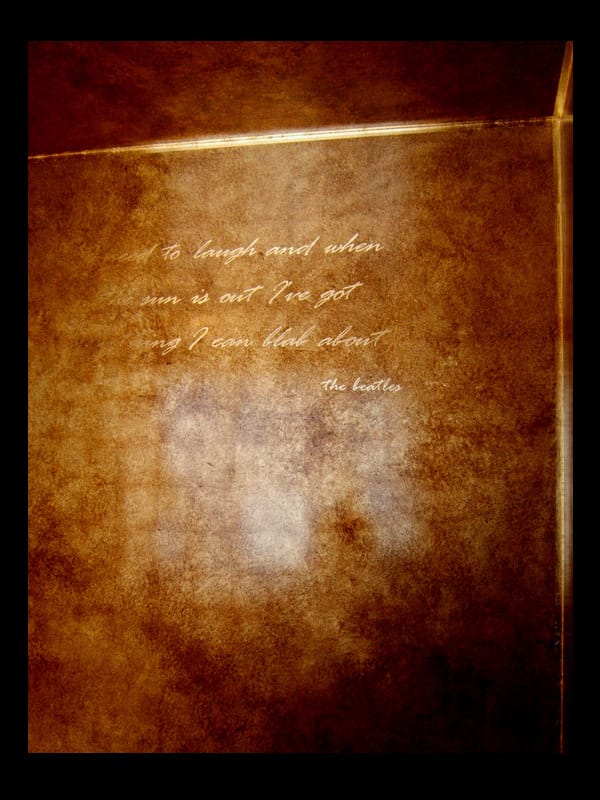 to laugh and when
the sun is out I've got
I can blab about
the beatles